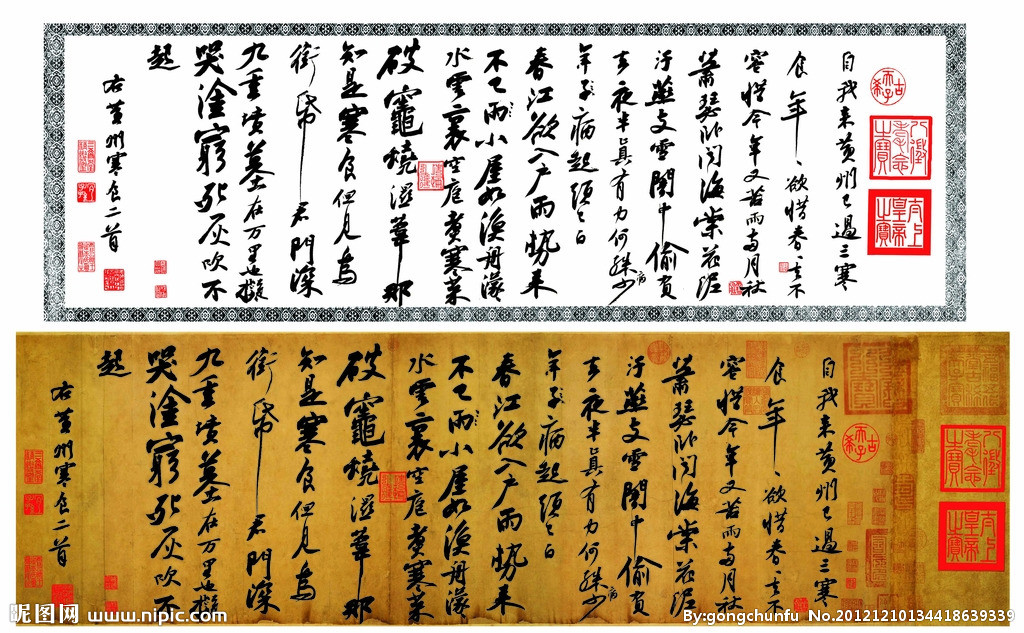 自我来黄州已過三寒
食年〻欲惜春〻去不
容惜今年又苦雨兩月秋
蕭瑟卧聞海棠花泥
汙燕支雪闇中偷負
去夜半真有力何殊少
年子病起須已白
春江欲入户雨勢来
不已雨小屋如漁舟濛〻
水雲裏空庖煮寒菜
破竈燒濕葦那
知是寒食但見烏
銜帋君門深
九重墳墓在万里也擬
哭塗窮死灰吹不
起
右黄州寒食二首
古希天子
八徵耄念之寶
太上皇帝之寶
自我来黄州已過三寒
食年〻欲惜春〻去不
容惜今年又苦雨兩月秋
蕭瑟卧聞海棠花泥
汙燕支雪闇中偷負
去夜半真有力何殊少
年子病起須已白
春江欲入户雨勢来
不已雨小屋如漁舟濛〻
水雲裏空庖煮寒菜
破竈燒濕葦那
知是寒食但見烏
銜帋君門深
九重墳墓在万里也擬
哭塗窮死灰吹不
起
右黄州寒食二首
古希天子
八徵耄念之寶
太上皇帝之寶
昵图网 www.nipic.com
By:gongchunfu No.20121210134418639339